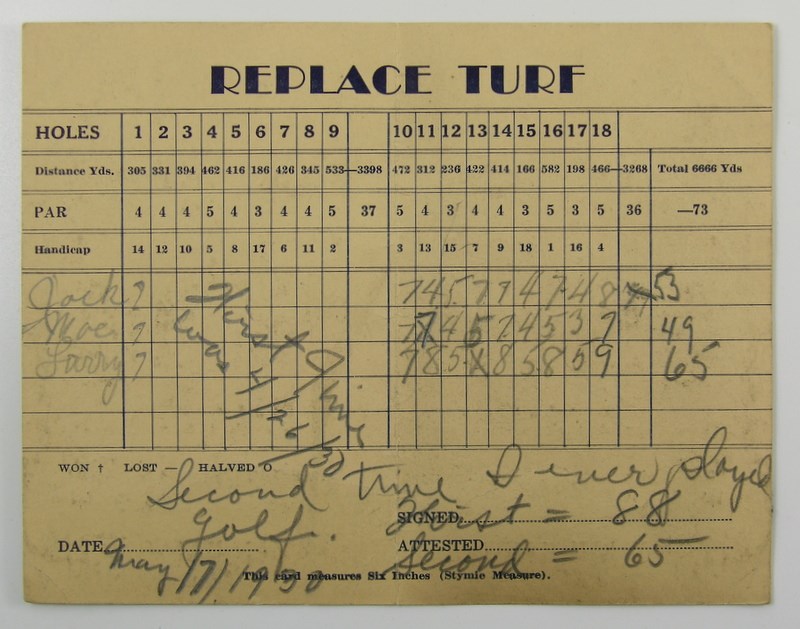 REPLACE TURF
HOLES 1 2 3 4 5 6 7 8 9 10 11 12 13 14 15 16 17 18
Distance Yds. 305 331 394 462 416 186 426 345 533—3398 472 312 236 422 414 166 582 198 466—3268 Total 6666 Yds
PAR 4 4 4 5 4 3 4 4 5 37 5 4 3 4 4 3 5 3 5 36 —73
Handicap 14 12 10 5 8 17 6 11 2 3 13 15 7 9 18 1 16 4
Jack 7 7 4 5 7 7 4 7 4 8 53
Moe 7 7 4 5 7 4 5 3 7 49
Larry 7 7 8 5 8 5 8 5 9 65
First Time
was 4/26/30
WON † LOST — HALVED O
Second time I ever played
golf.
SIGNED First = 88
DATE May 17/1930
ATTESTED Second = 65
This card measures Six Inches (Stymie Measure).